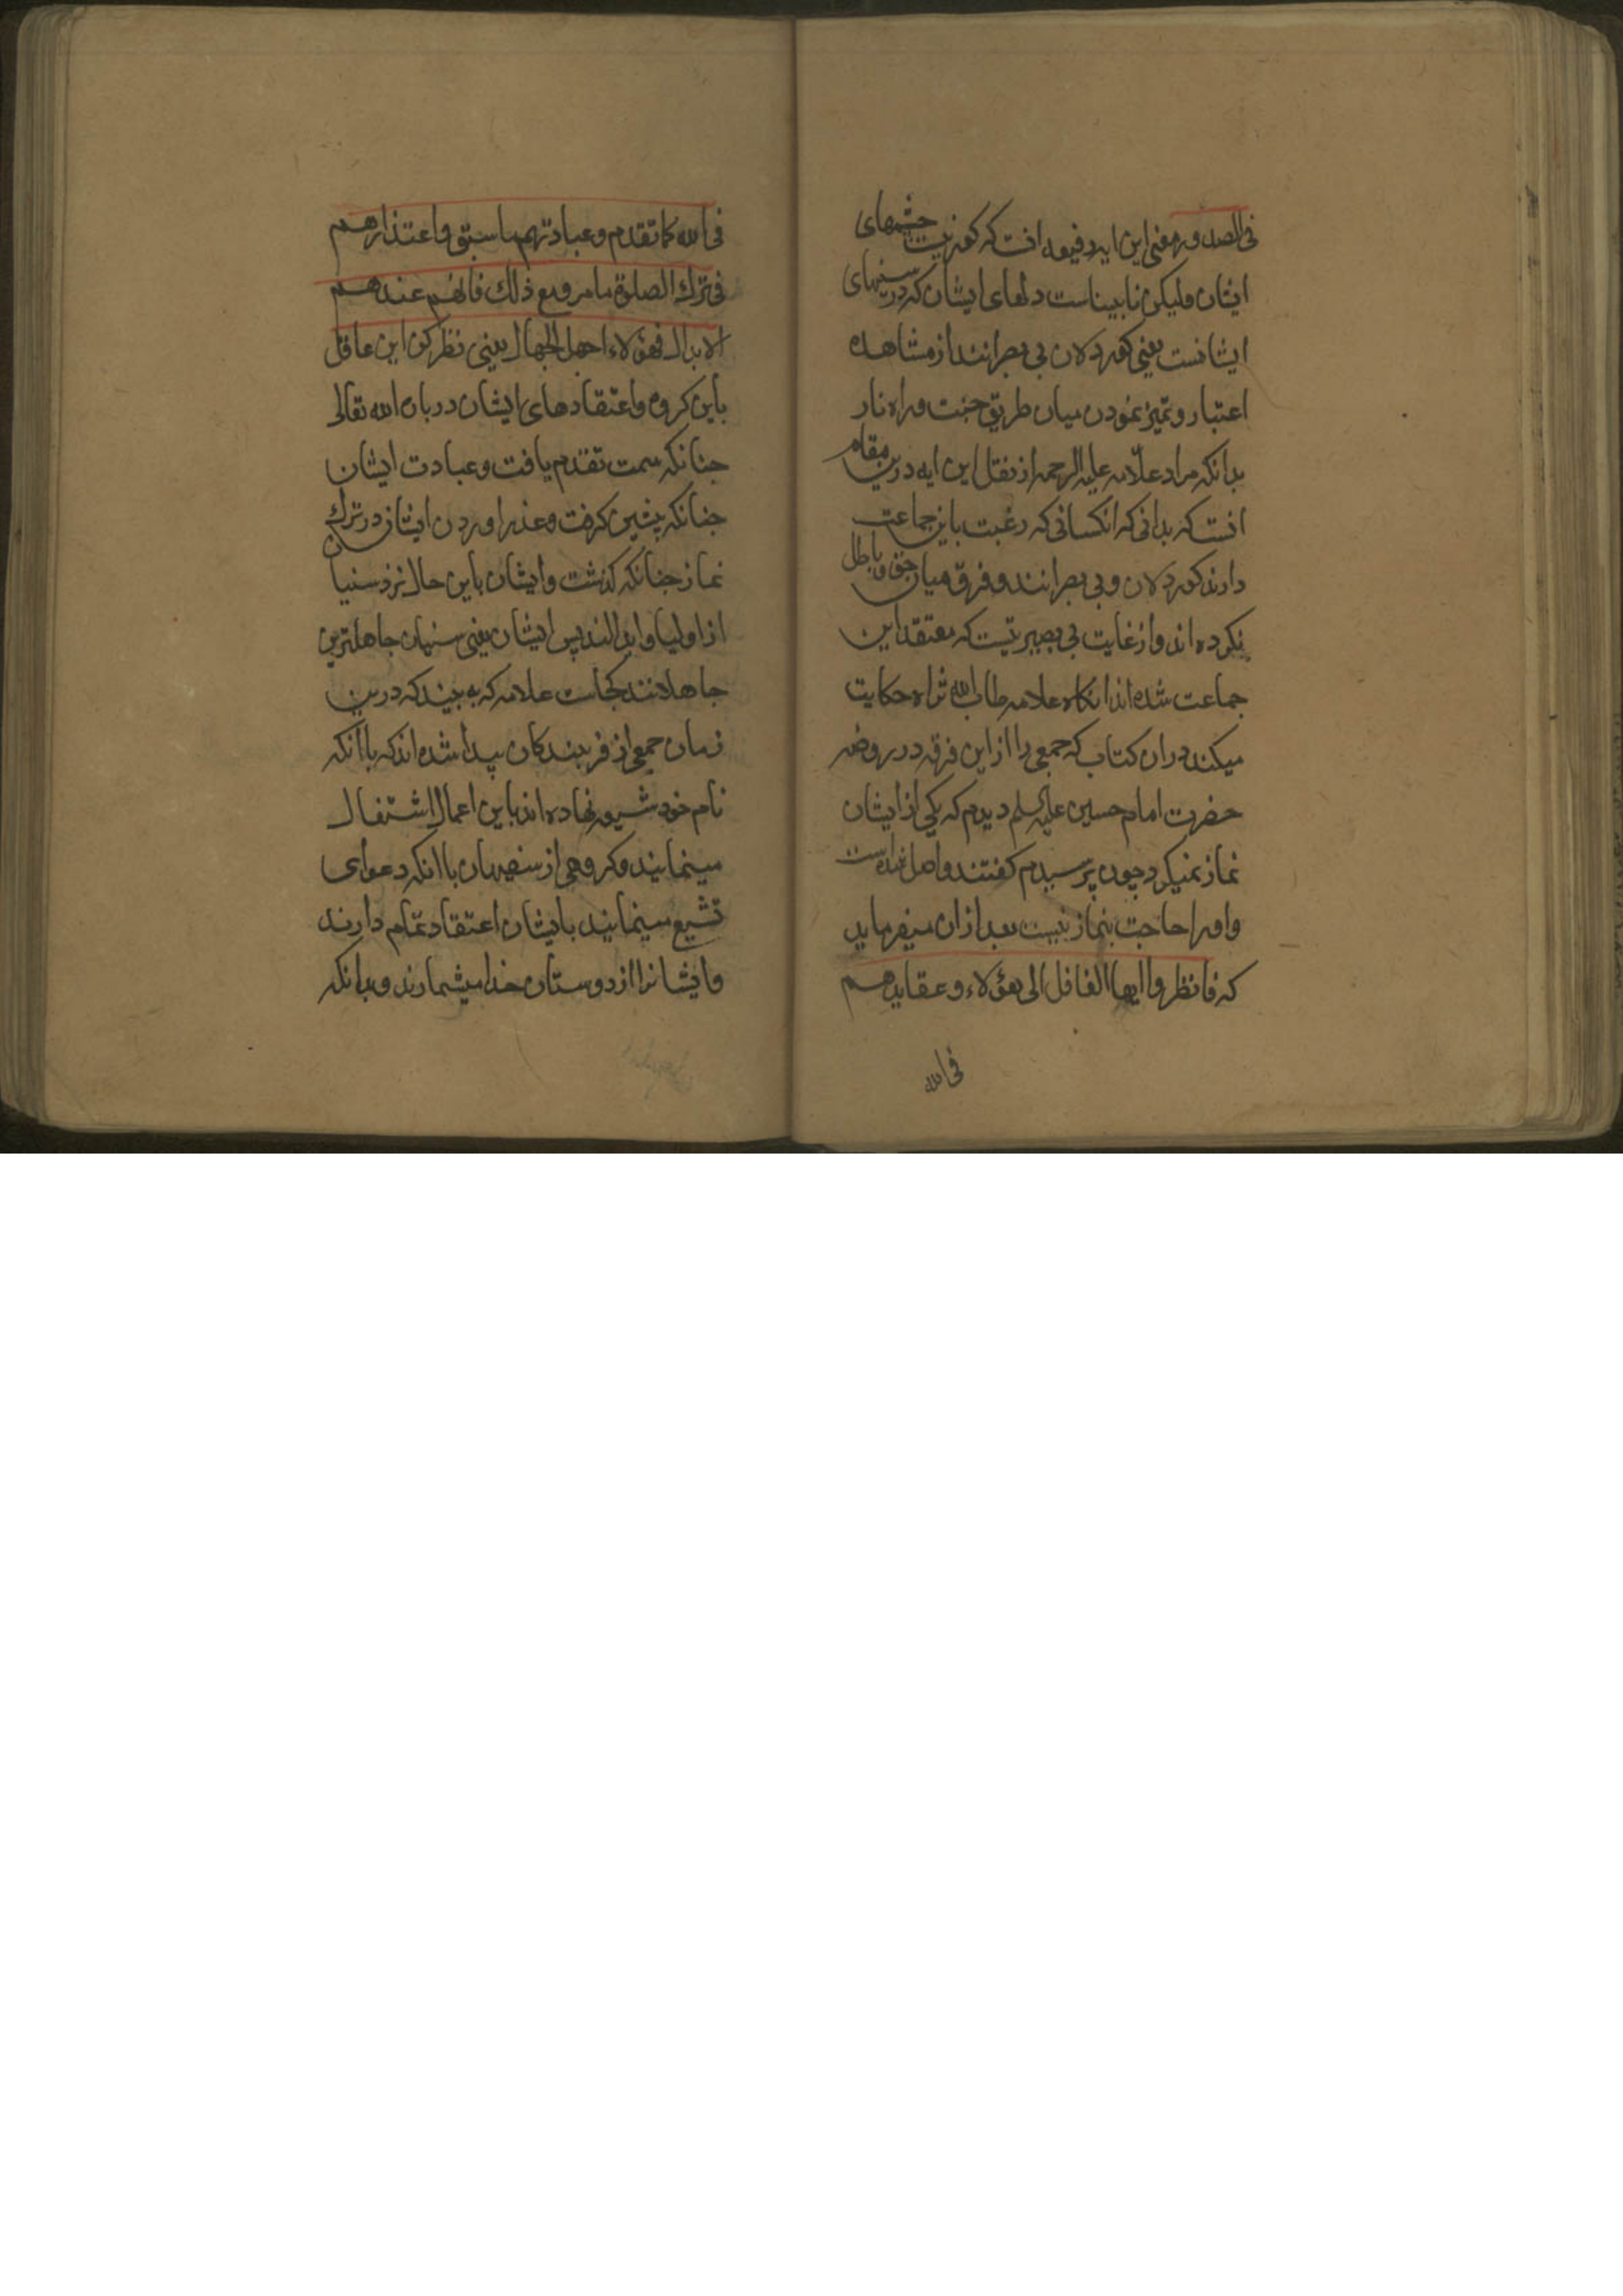 فی الصدور و معنی این ایه رفیعه انست که کور نیست چشمهای
ایشان ولیکن نابیناست دلهای ایشان که در سینهای
ایشانست یعنی کور دلان بی بصرانند از مشاهده
اعتبار و تمیز نمودن میان طریق جنت و راه نار
بدانکه مراد علامه علیه الرحمه از نقل این ایه درین مقام
انست که بدانی که انکسانی که رغبت باین جماعت
دارند کور دلان و بی بصرانند و فرق میان حق و باطل
نکرده اند و از غایت بی بصیرتیست که معتقد این
جماعت شده اند انکاه علامه طاب الله ثراه حکایت
میکند در ان کتاب که جمعی را از این فرقه در روضه
حضرت امام حسین علیه السلم دیدم که یکی از ایشان
نماز نمیکرد چون پرسیدم کفتند واصل شده است
و او را حاجت بنماز نیست بعد از ان میفرماید
که فانظر و ایها الغافل الی هؤلاء و عقایدهم
فی الله
فی الله کما تقدم و عبادتهم ما سبق و اعتذارهم
فی ترک الصلوة ما مر و مع ذلک فانهم عندهم
الابدال فهؤلاء اجهل الجهال یعنی نظر کن این عاقل
باین کروه و اعتقادهای ایشان در باره الله تعالی
جنانکه سمت تقدم یافت و عبادت ایشان
جنانکه پیشین کرفت و عذر اوردن ایشان در ترک
نماز جنانکه کذشت و ایشان باین حال نزد سنیان
از اولیا و ابدالند پس ایشان یعنی سنیان جاهلترین
جاهلانند کجاست علامه که به بیند که درین
زمان جمعی از فریبندکان پیدا شده اند که با انکه
نام خود شیعه نهاده اند باین اعمال اشتغال
مینمایند و کروهی از سفیهان با انکه دعوای
تشیع مینمایند بایشان اعتقاد تمام دارند
و ایشانرا از دوستان خدا میشمارند و بدانکه